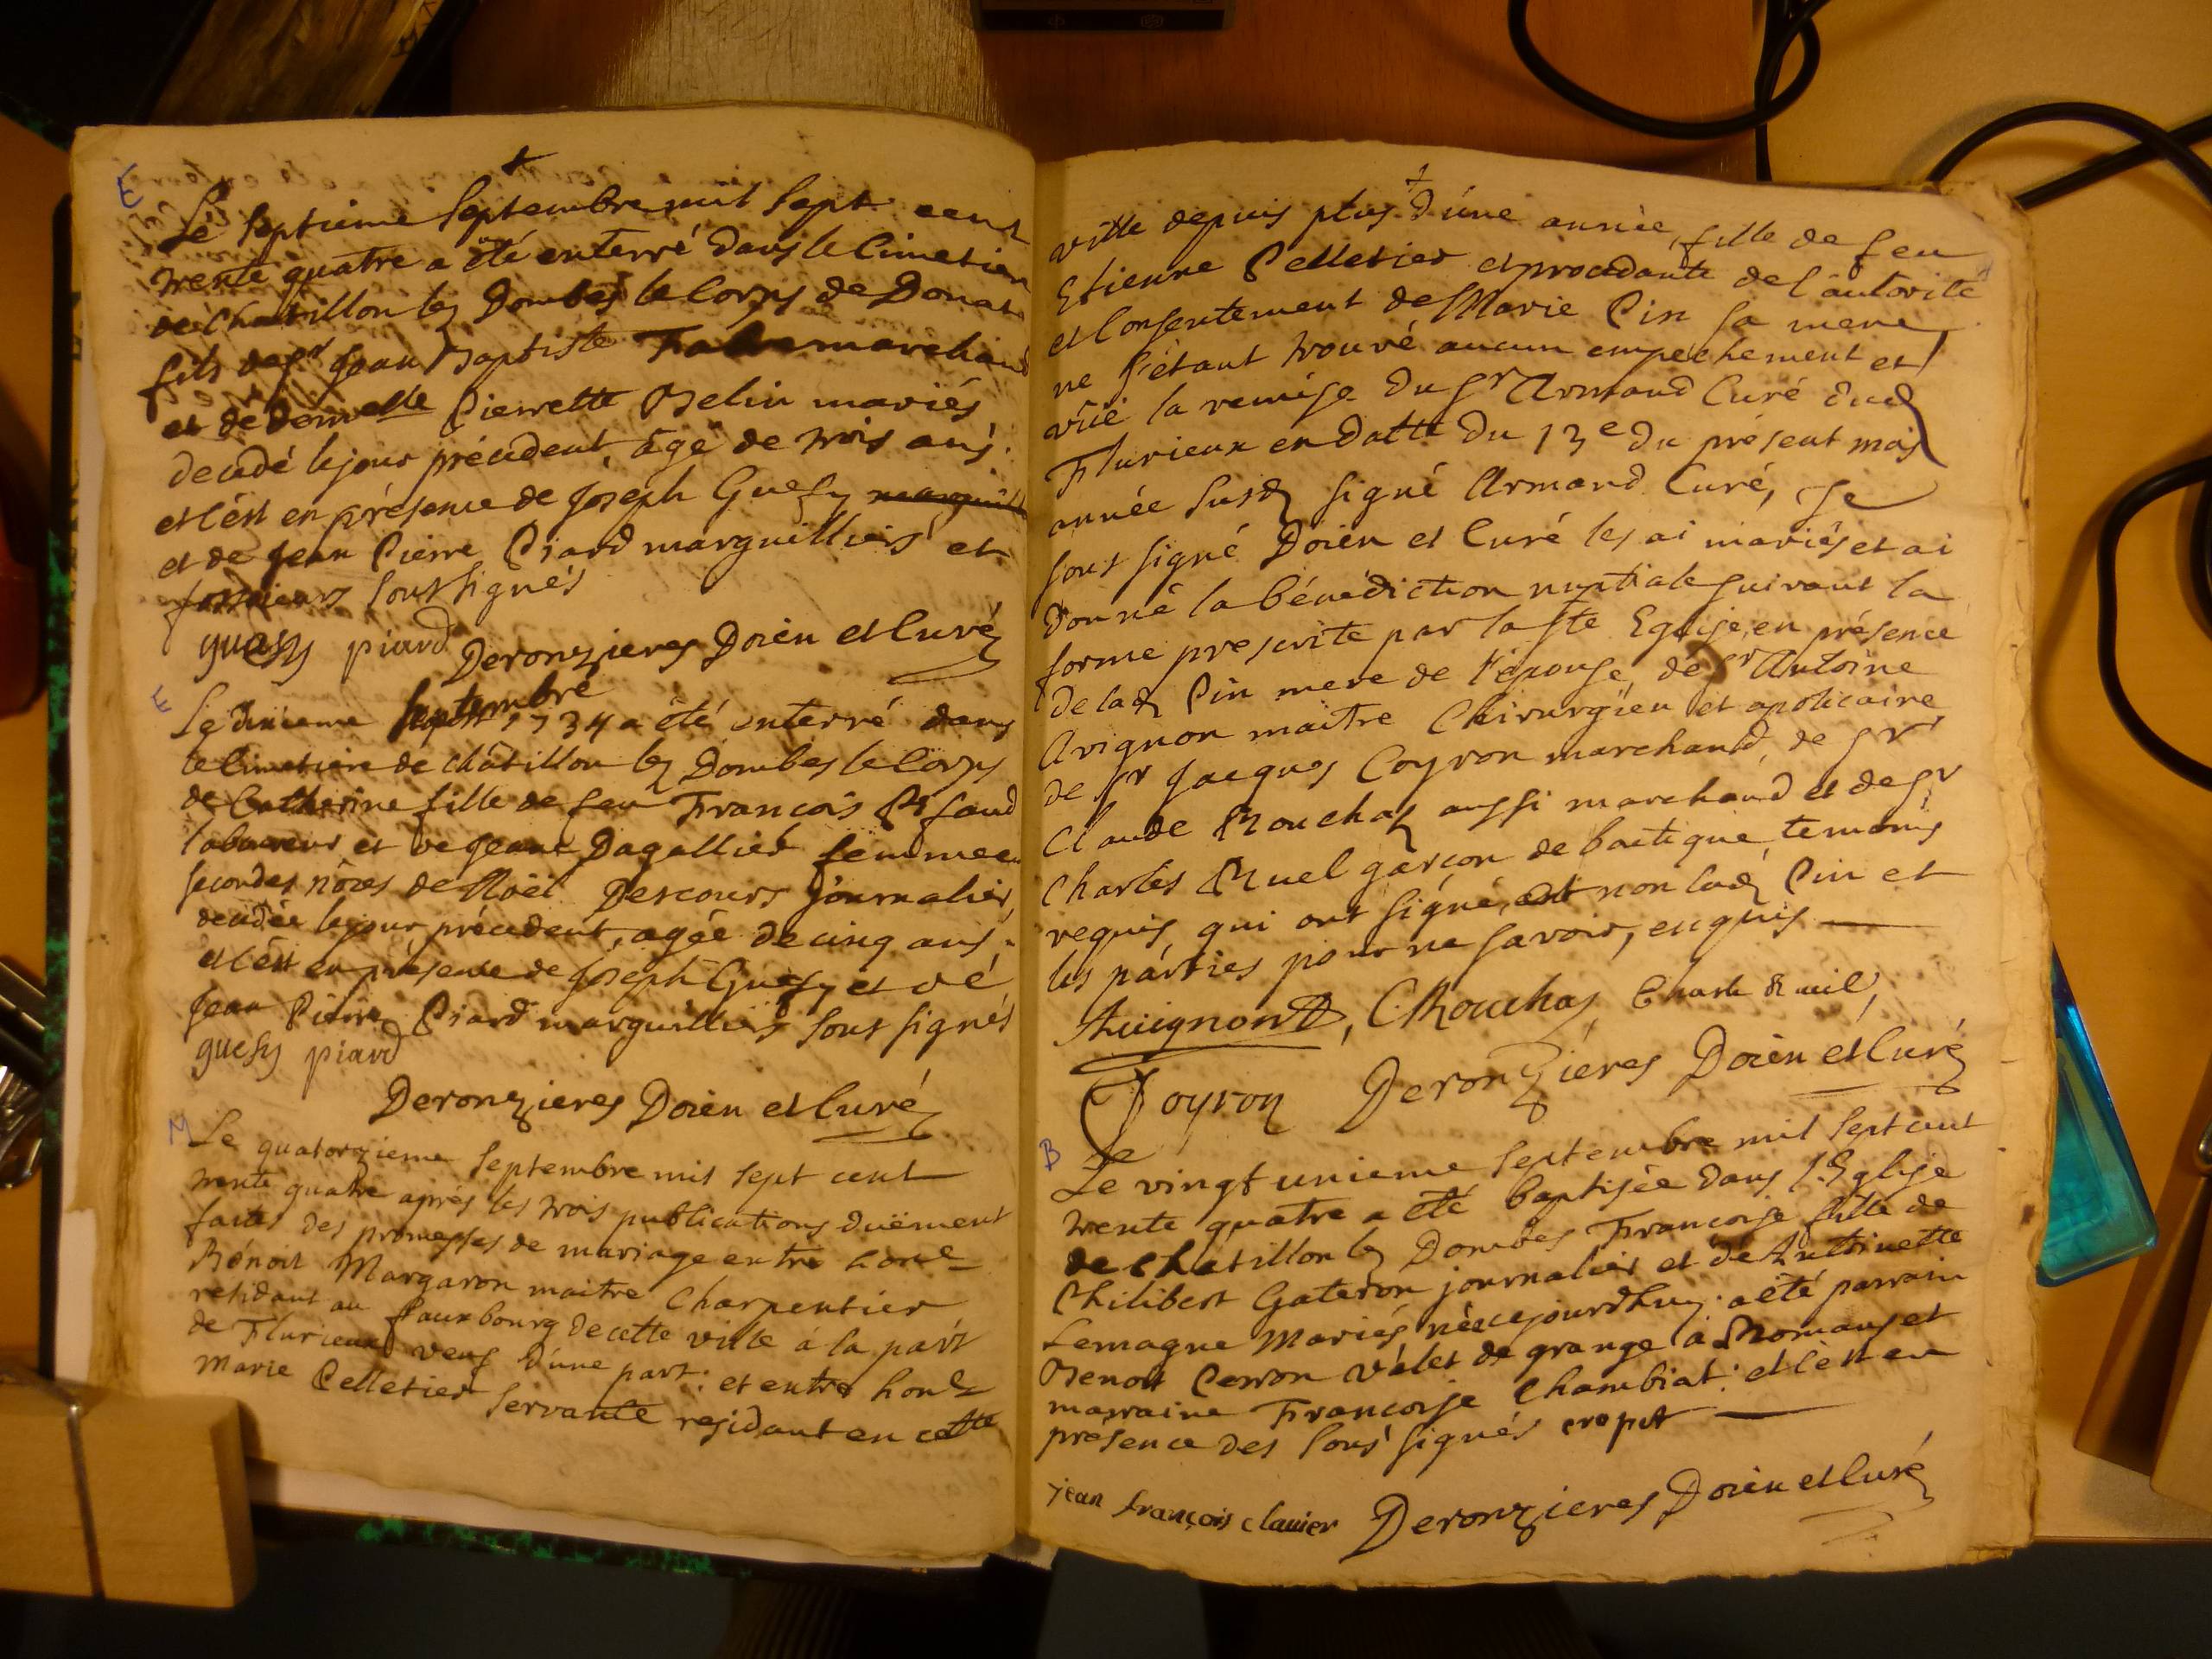 E
Le septieme septembre mil sept cent
trente quatre a été enterré dans le cimetiere
de Chatillon lez Dombes le corps de Donat
fils de sr Jean Baptiste marchand
et de demoiselle Pierrette Belin mariés
decedé le jour précedent, agé de trois ans.
et c'est en présence de Joseph Guesy
et de Jean Pierre Piard marguilliers et
fossoieurs soussignés
guesy piard Deronzieres Doien et Curé
E
Le dixieme septembre 1734 a été enterré dans
le Cimetiere de châtillon lez Dombes le Corps
de Catherine fille de feu François
laboureur et de Jeane Dagallier femme en
secondes nôces de Noël Descours journalier,
decedée le jour précedent, agée de cinq ans.
et c'est en présence de Joseph Guesy et de
Jean Pierre Piard marguilliers sous signés
guesy piard
Deronzieres Doien et Curé
M
Le quatorzieme septembre mil sept cent
trente quatre aprés les trois publications duëment
faites des promesses de mariage entre hon
Bénoit Margaron maitre Charpentier
residant au Fauxbourg de cette ville à la part
de Flurieux veuf d'une part: et entre hon
Marie Pelletier servante residant en cette
ville depuis plus d'une année, fille de feu
Etienne Pelletier et procedante de l'autorité
et Consentement de Marie Pin sa mere
ne s'étant trouvé aucun empechement et
vüe la remise du Sr Armand Curé dud
Flurieux en datte du 13e du présent mois
année susd signé Armand Curé, Je
sous signé Doien et Curé les ai mariés et ai
donné la bénédiction nuptiale suivant la
forme prescrite par la Ste Eglise, en présence
de lad Pin mere de l'épouse, de Sr Antoine
Avignon maitre Chirurgien et apoticaire
de Sr Jacques Coyron marchand, de Sr
Claude Rouchas aussi marchand et de Sr
Charles Ruel garçon de boutique, temoins
requis, qui ont signé, et non lad Pin et
les parties pour ne savoir, enquis
Avignon, C Rouchas, Charle Ruel,
Coyron Deronzieres Doien et Curé
B
Le vingt unieme septembre mil sept cent
trente quatre a été baptisée dans l'Eglise
de Chatillon lez Dombes Francoise fille de
Philibert Gateron journalier et de Antoinette
Lemagne Mariés née ce jourdhuy: a été parrain
Benoit Perron valet de grange à Romans et
marraine Francoise Chambiat: et c'est en
présence des sous signés
jean françois clavier Deronzieres Doien et Curé